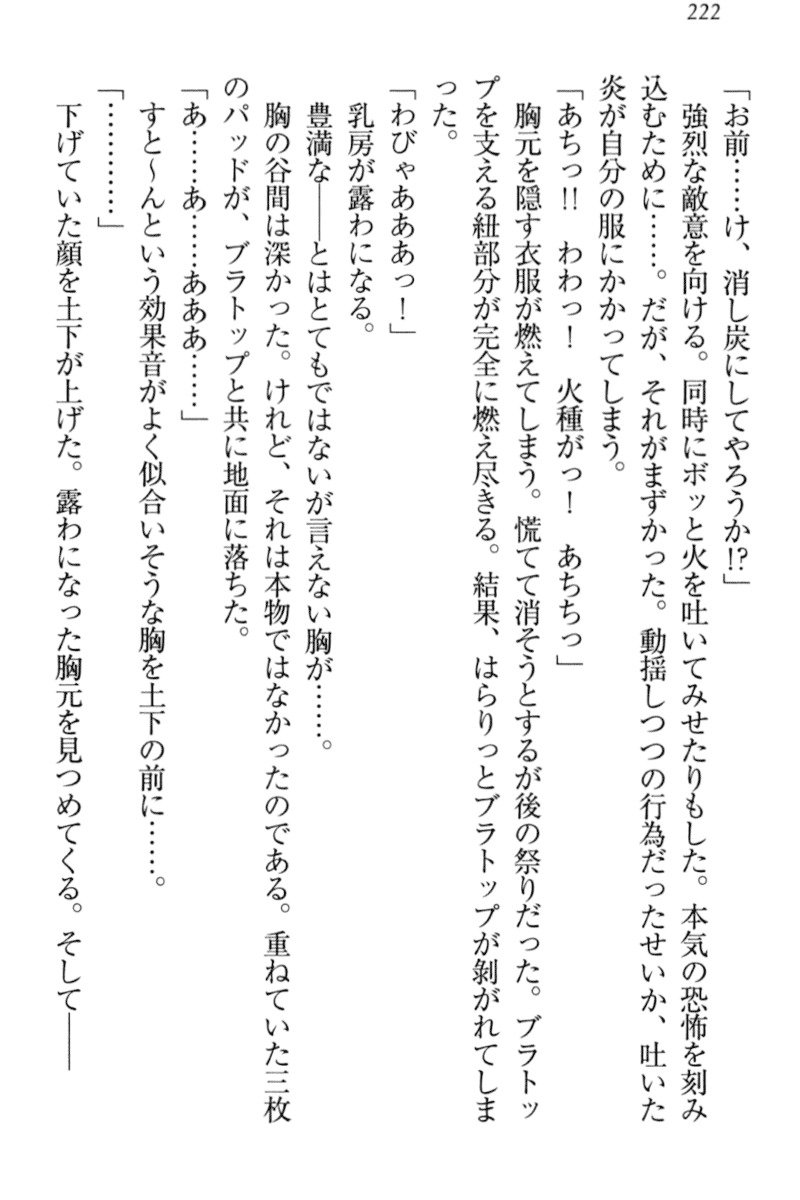 222
「お前……け、消し炭にしてやろうか!?」
強烈な敵意を向ける。同時にボッと火を吐いてみせたりもした。本気の恐怖を刻み
込むために……。だが、それがまずかった。動揺しつつの行為だったせいか、吐いた
炎が自分の服にかかってしまう。
「あちっ!! わわっ! 火種がっ! あちちっ」
胸元を隠す衣服が燃えてしまう。慌てて消そうとするが後の祭りだった。ブラトッ
プを支える紐部分が完全に燃え尽きる。結果、はらりっとブラトップが剝がれてしま
った。
「わびゃあああっ!」
乳房が露わになる。
豊満な――とはとてもではないが言えない胸が……。
胸の谷間は深かった。けれど、それは本物ではなかったのである。重ねていた三枚
のパッドが、ブラトップと共に地面に落ちた。
「あ……あ……あああ……」
すと～んという効果音がよく似合いそうな胸を土下の前に……。
「…………」
下げていた顔を土下が上げた。露わになった胸元を見つめてくる。そして――